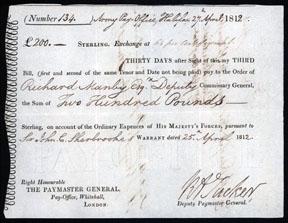 (Number 134.) Army Pay-Office, Halifax 27th April 1812
£200.— STERLING. Exchange at
THIRTY DAYS after Sight of this my THIRD
Bill, (first and second of the same Tenor and Date not being paid) pay to the Order of
Richard Manby Esqr. Deputy Commissary General,
the Sum of Two Hundred Pounds
Sterling, on account of the Ordinary Expences of HIS MAJESTY'S FORCES, pursuant to
Sir John C. Sherbrooke's WARRANT dated 25th April 1812.
Right Honourable
THE PAYMASTER GENERAL,
Pay-Office, Whitehall,
LONDON.
Deputy Paymaster General.